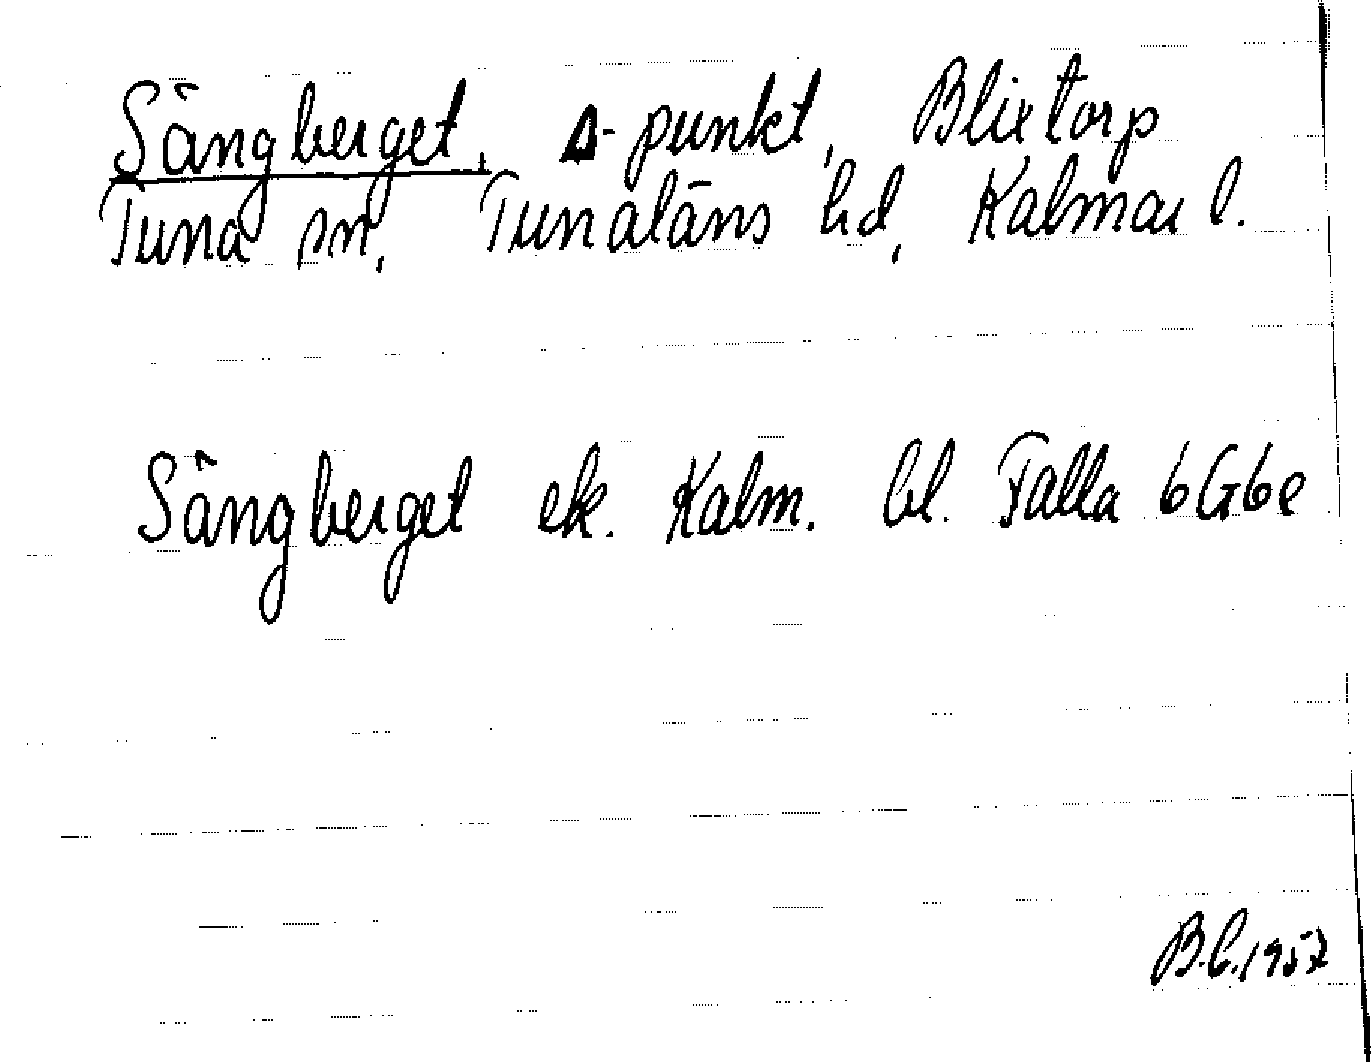 Sångberget, Δ-punkt, Blixtorp
Tuna sn, Tunaläns hd, Kalmar l.
Sångberget ek. Kalm. bl. Falla 6G6e
1957